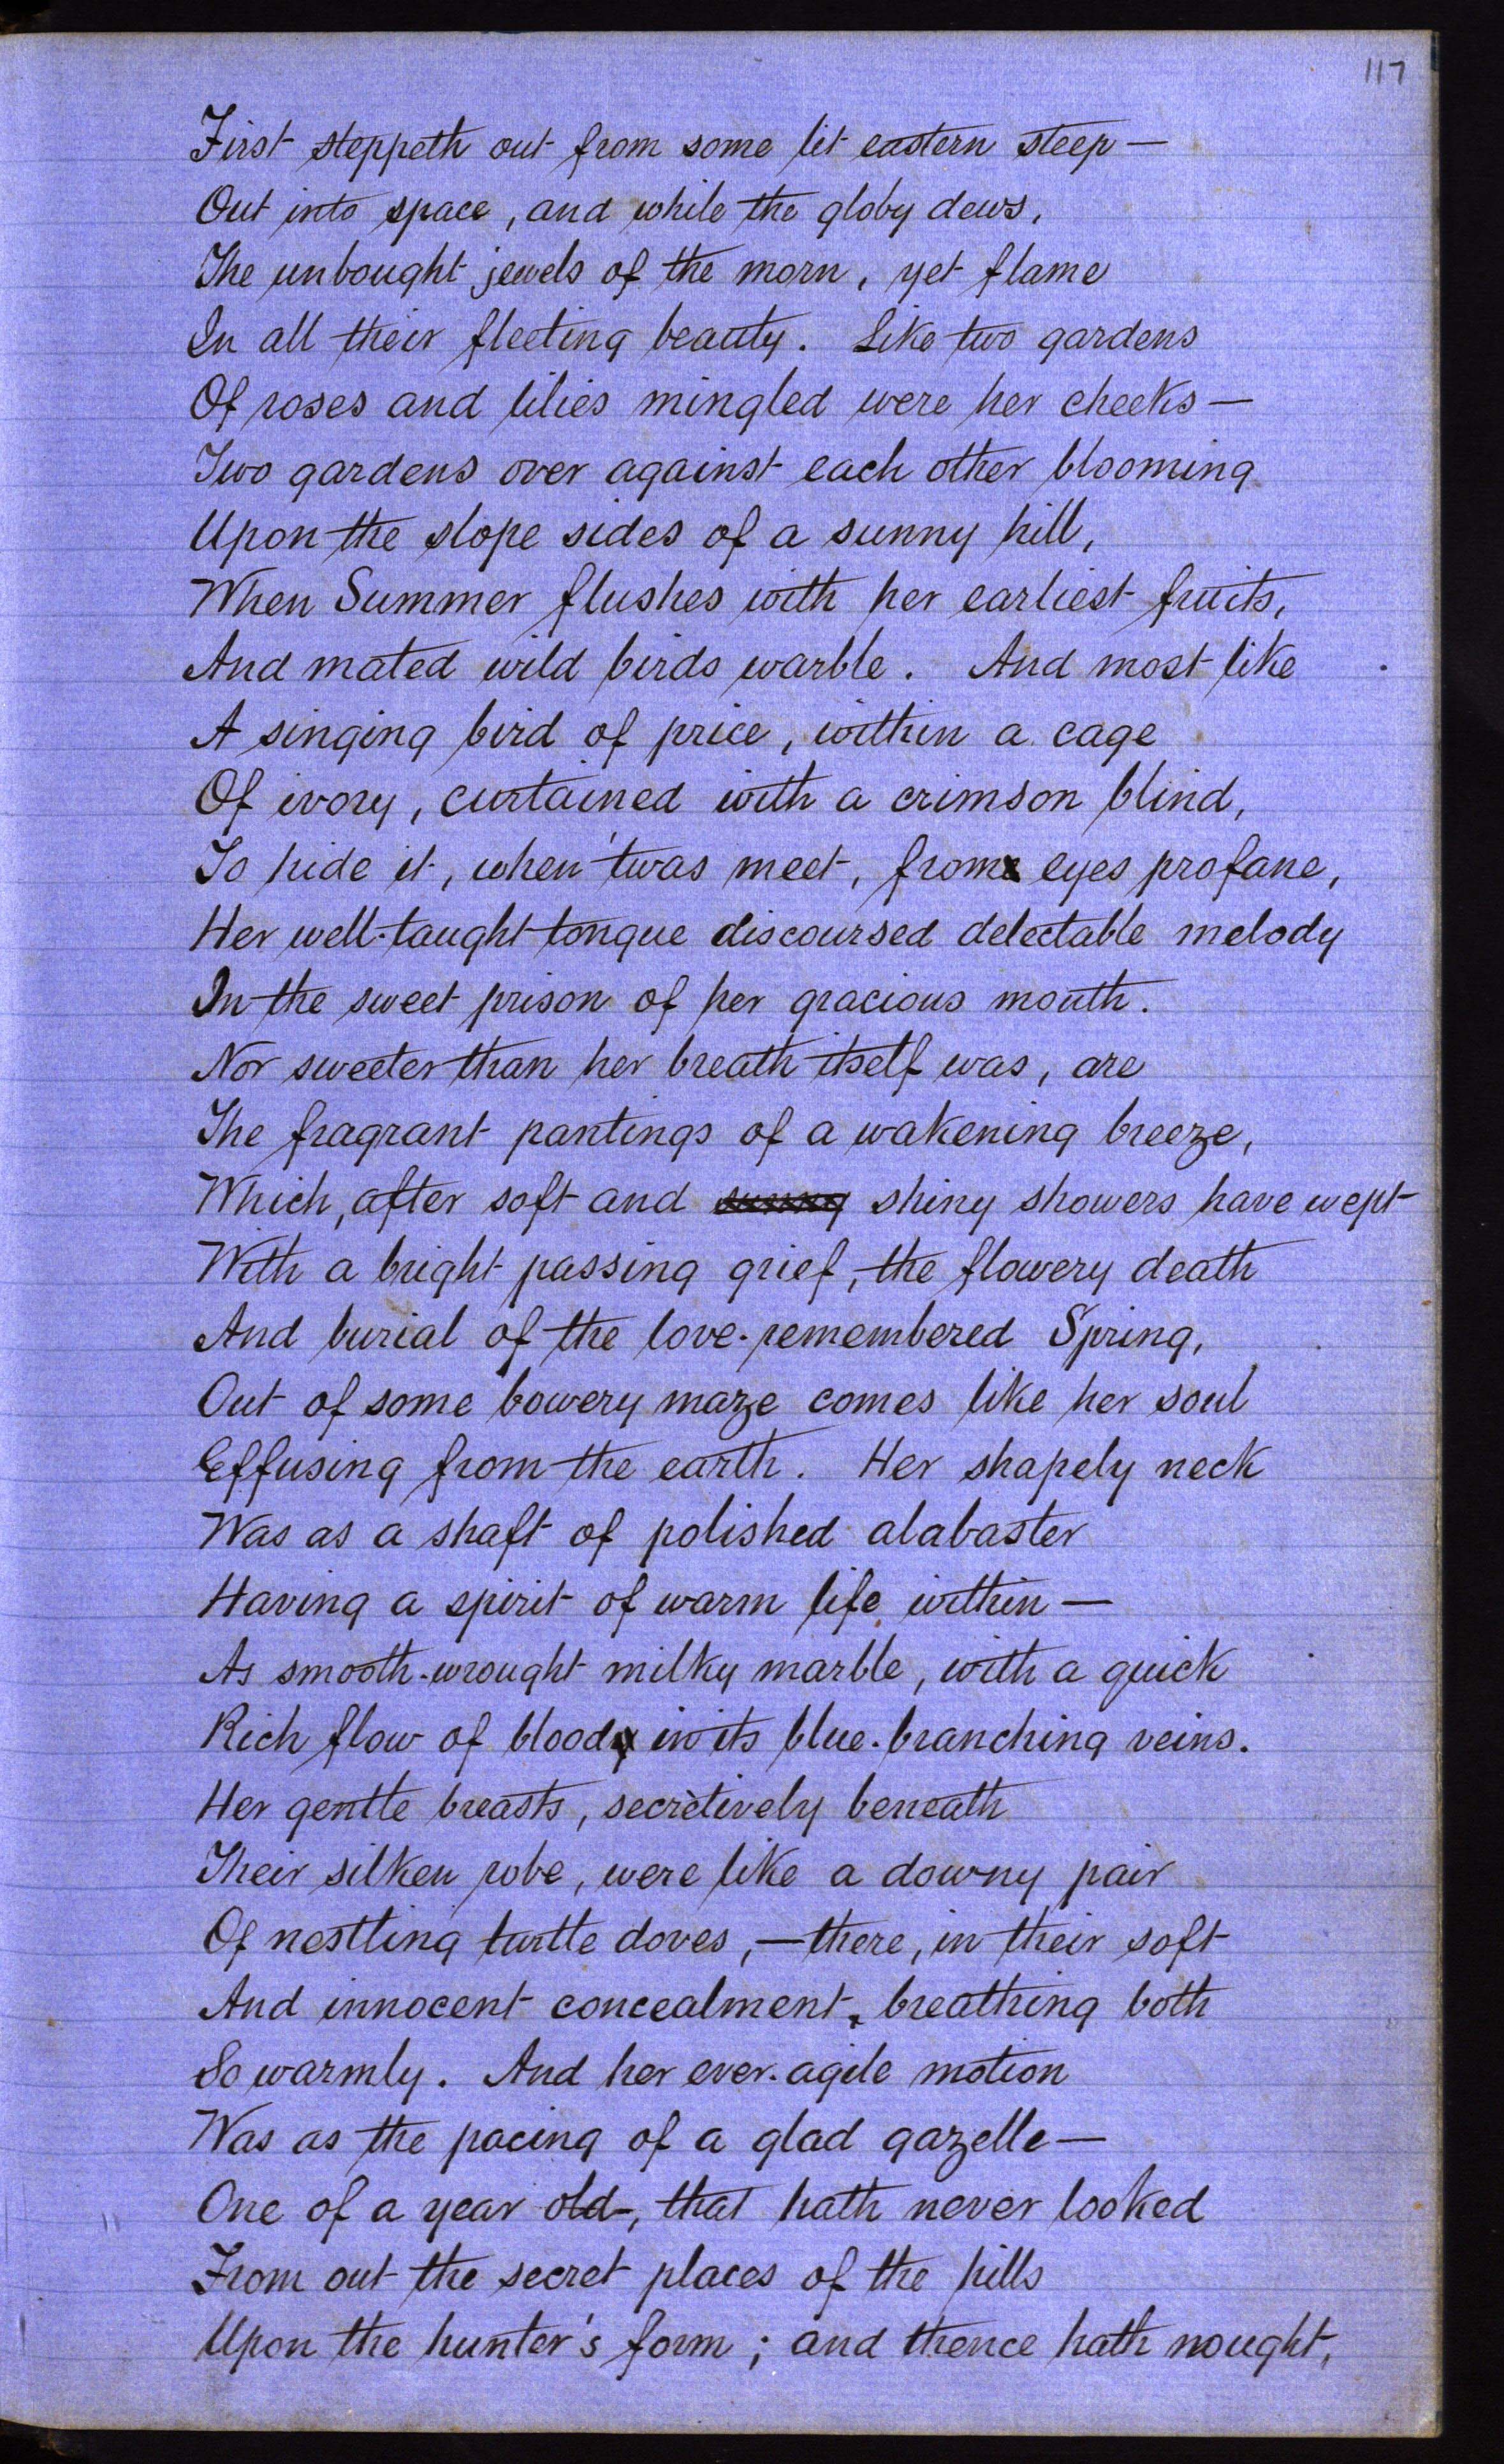 117
First steppeth out from some lit eastern steep —
Out into space, and while the globy dews,
The unbought jewels of the morn, yet flame
In all their fleeting beauty. Like two gardens
Of roses and lilies mingled were her cheeks —
Two gardens over against each other blooming
Upon the slope sides of a sunny hill,
When Summer flushes with her earliest fruits,
And mated wild birds warble. And most like
A singing bird of price, within a cage
Of ivory, curtained with a crimson blind,
To hide it, when 'twas meet, from eyes profane,
Her well-taught tongue discoursed delectable melody
In the sweet prison of her gracious mouth.
Nor sweeter than her breath itself was, are
The fragrant pantings of a wakening breeze,
Which, after soft and sunny shiny showers have wept
With a bright passing grief, the flowery death
And burial of the love-remembered Spring,
Out of some bowery maze comes like her soul
Effusing from the earth. Her shapely neck
Was as a shaft of polished alabaster
Having a spirit of warm life within —
As smooth-wrought milky marble, with a quick
Rich flow of blood in its blue-branching veins.
Her gentle breasts, secretively beneath
Their silken robe, were like a downy pair
Of nestling turtle doves, — there, in their soft
And innocent concealment, breathing both
So warmly. And her ever-agile motion
Was as the pacing of a glad gazelle —
One of a year old, that hath never looked
From out the secret places of the hills
Upon the hunter's form; and thence hath nought,